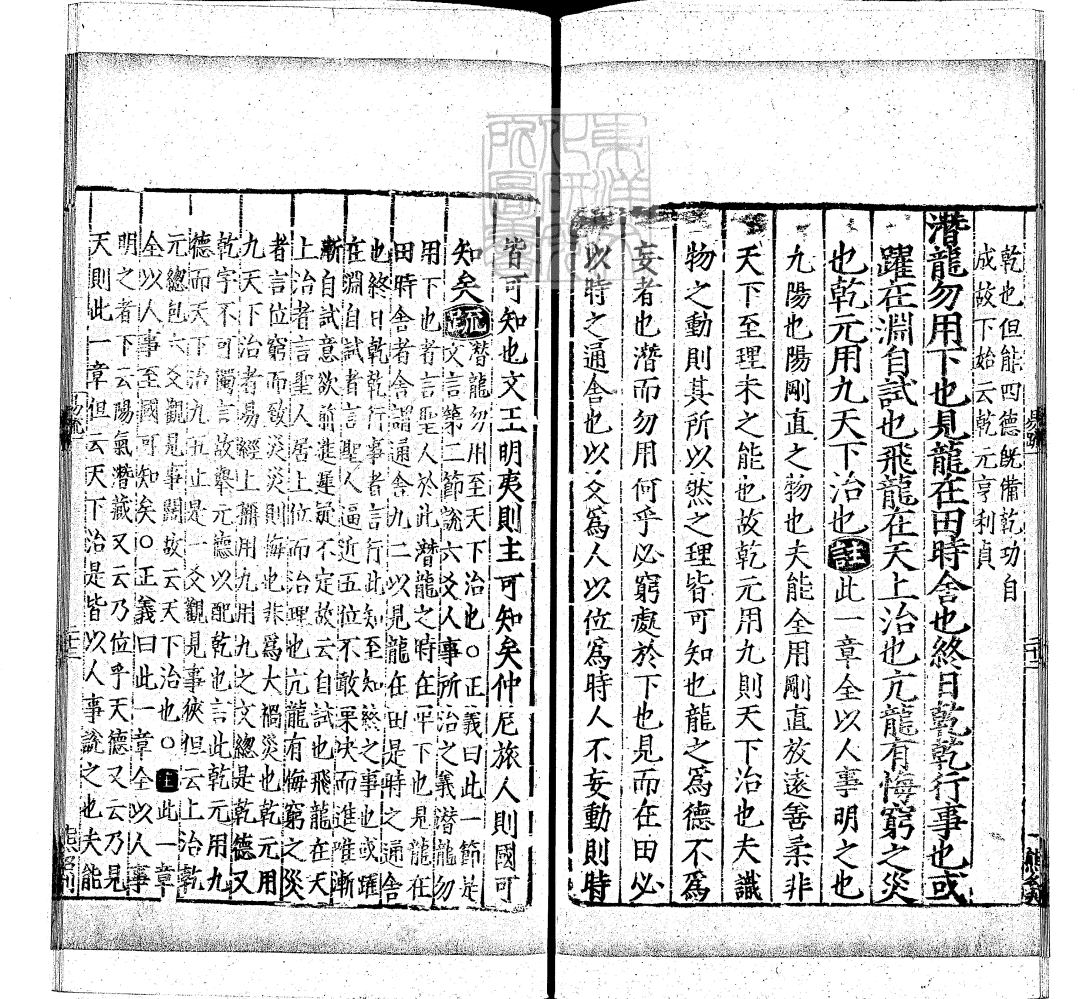 乾也但能四德既備乾功自
成故下始云乾元亨利貞
潛龍勿用下也見龍在田時舍也終日乾乾行事也或
躍在淵自試也飛龍在天上治也亢龍有悔窮之災
也乾元用九天下治也註此一章全以人事明之也
九陽也陽剛直之物也夫能全用剛直放遠善柔非
天下至理未之能也故乾元用九則天下治也夫識
物之動則其所以然之理皆可知也龍之爲德不爲
妄者也潛而勿用何乎必窮處於下也見而在田必
以時之通舍也以爻爲人以位爲時人不妄動則時
皆可知也文王明夷則主可知矣仲尼旅人則國可
知矣疏潛龍勿用至天下治也○正義曰此一節是
文言第二節說六爻人事所治之義潛龍勿
用下也者言聖人於此潛龍之時在卑下也見龍在
田時舍者舍謂通舍九二以見龍在田是時之通舍
也終日乾乾行事者言行此知至知終之事也或躍
在淵自試者言聖人逼近五位不敢果决而進唯漸
漸自試意欲前進遲疑不定故云自試也飛龍在天
上治者言聖人居上位而治理也亢龍有悔窮之災
者言位窮而致災災則悔也非爲大禍災也乾元用
九天下治者易經上稱用九用九之文總是乾德又
乾字不可獨言故舉元德以配乾也言此乾元用九
德而天下治九五止是一爻觀見事狹但云上治乾
元總包六爻觀見事闊故云天下治也○註此一章
全以人事至國可知矣○正義曰此一章全以人事
明之者下云陽氣潛藏又云乃位乎天德又云乃見
天則此一章但云天下治是皆以人事說之也夫能
易疏
二十二